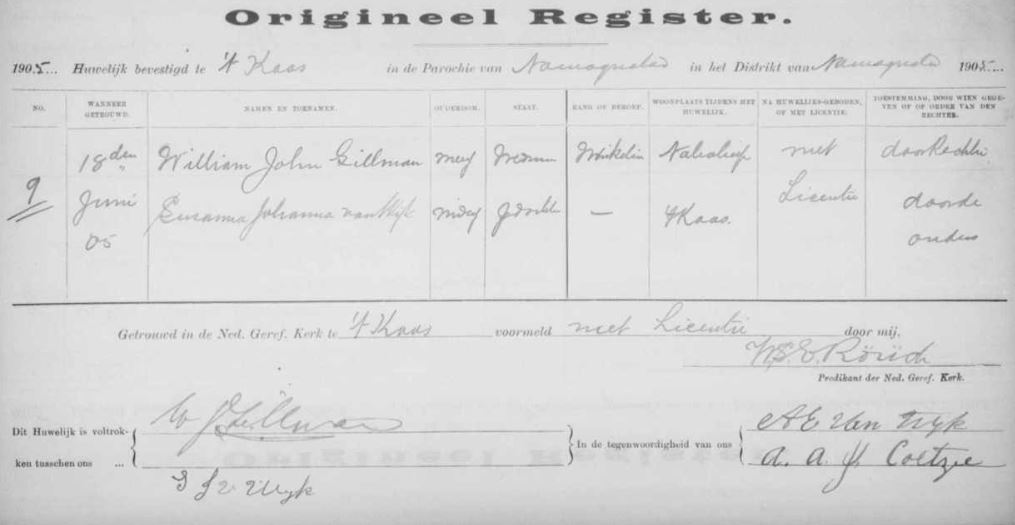 Origineel Register.
1905... Huwelijk bevestigd te 't Kaas in de Parochie van Namaqualand in het Distrikt van 1905...
NO. WANNEER GETROUWD. NAMEN EN TOENAMEN. OUDERDOM. STAAT. RANG OF BEROEP. WOONPLAATS TIJDENS HET HUWELIJK. NA HUWELIJKS-GEBODEN, OF MET LICENTIE. TOESTEMMING, DOOR WIEN GEGEVEN OF OP ORDER VAN DEN RECHTER.
18den William John Gillman met door
9 Juni Susanna Johanna van Wyk — 't Kaas. Licentie door de
05 ouders
Getrouwd in de Ned. Geref. Kerk te 't Kaas voormeld met Licentie door mij,
Predikant der Ned. Geref. Kerk.
Dit Huwelijk is voltrokken tusschen ons ... W J Gillman
S J v Wyk
In de tegenwoordigheid van ons A E Van Wyk
A. A. J. Coetzee